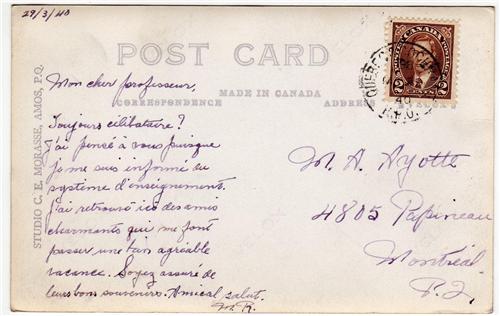 29/3/40
POST CARD
MADE IN CANADA
CORRESPONDENCE
ADDRESS
STUDIO C. E. MORASSE, AMOS, P.Q.
Mon cher professeur,
Toujours célibataire?
J'ai pensé à vous puisque
je me suis informé du
système d'enseignement.
J'ai retrouvé ici des amis
charmants qui me font
passer une tan agréable
vacance. Soyez assuré de
leurs bons souvenirs. Amical salut.
M. R.
M. A. Ayotte
4805 Papineau
Montréal
P.Q.
POSTES CANADA POSTAGE
2 2
QUEBEC
40
R.P.O.